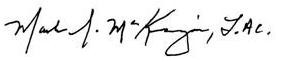 Mark J. McKenzie, L.Ac.